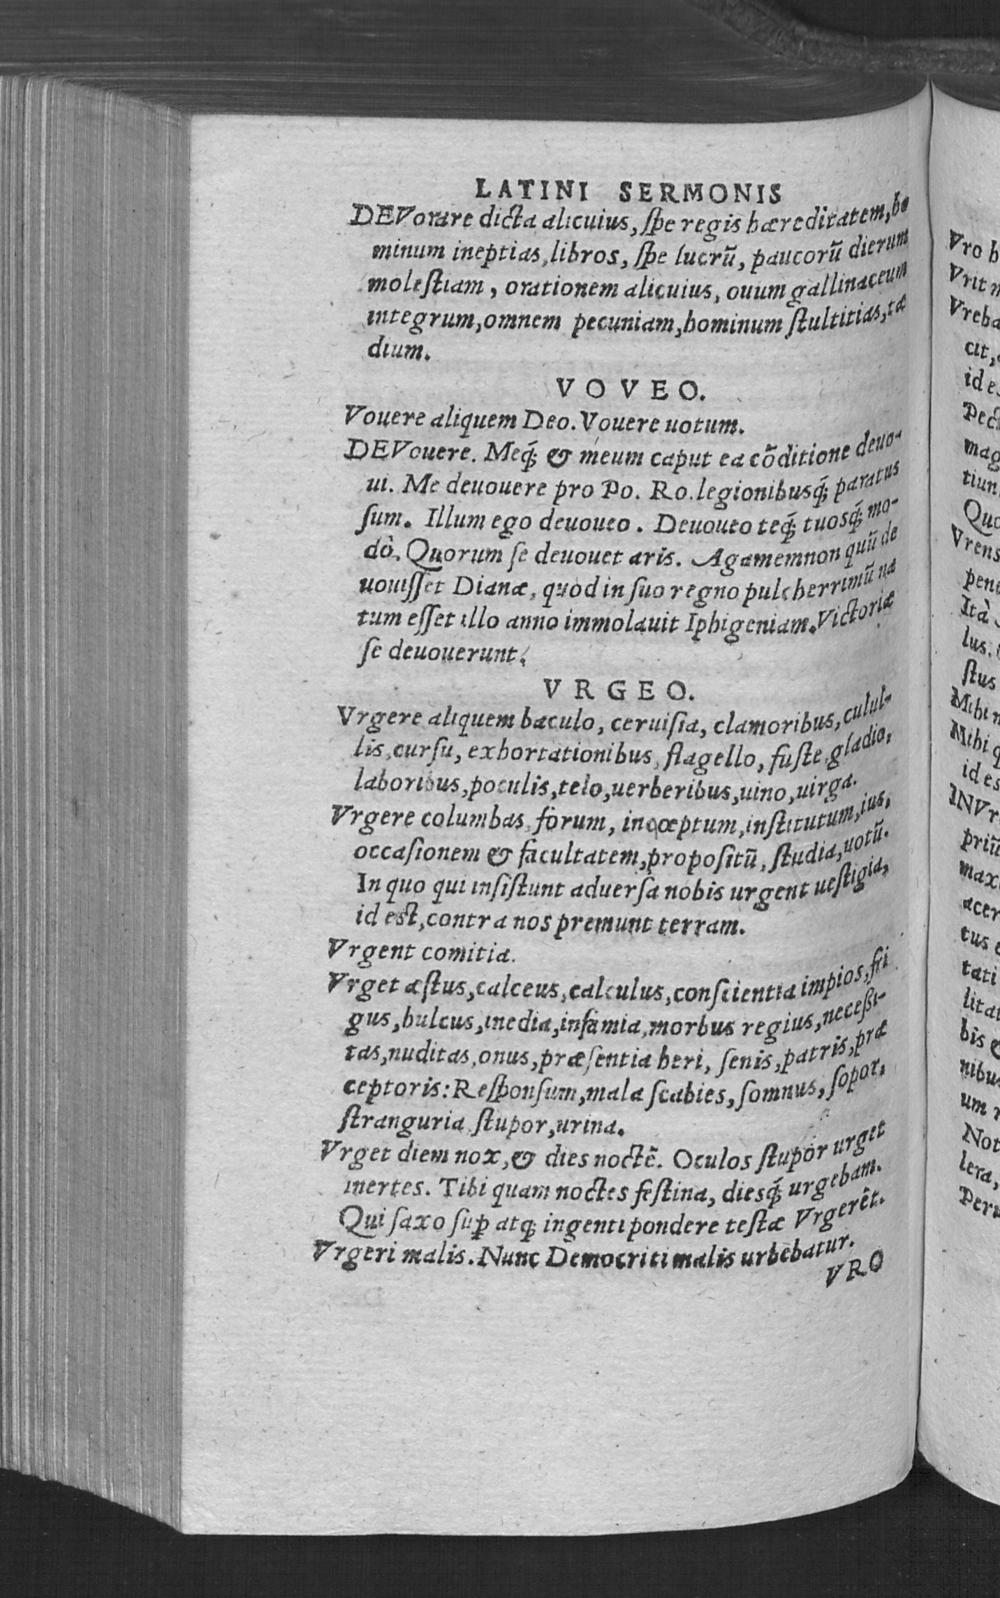 LATINI SERMONIS
DEVorare dicta alicuius, spe regis hæreditatem, ho
minum ineptias, libros, spe lucrũ, paucorũ dierum
molestiam, orationem alicuius, ouum gallinaceum
integrum, omnem pecuniam, hominum stultitias, tæ
dium.
VOVEO.
Vouere aliquem Deo. Vouere uotum.
DEVouere. Meq́; & meum caput ea cõditione deuo-
ui. Me deuouere pro Po. Ro. legionibusq́; paratus
sum. Illum ego deuoueo. Deuoueo teq́; tuosq́; mo-
dò. Quorum se deuouet aris. Agamemnon quũ de
uouisset Dianæ, quod in suo regno pulcherrimũ na
tum esset illo anno immolauit Iphigeniam. Victoriæ
se deuouerunt.
VRGEO.
Vrgere aliquem baculo, ceruisia, clamoribus, culul-
lis, cursu, exhortationibus, flagello, fuste, gladio,
laboribus, poculis, telo, uerberibus, uino, uirga.
Vrgere columbas, forum, incœptum, institutum, ius,
occasionem & facultatem, propositũ, studia, uotũ.
In quo qui insistunt aduersa nobis urgent uestigia,
id est, contra nos premunt terram.
Vrgent comitia.
Vrget æstus, calceus, calculus, conscientia impios, fri
gus, hulcus, inedia, infamia, morbus regius, necessi-
tas, nuditas, onus, præsentia heri, senis, patris, præ
ceptoris: Responsum, mala scabies, somnus, sopor,
stranguria, stupor, urina.
Vrget diem nox, & dies noctẽ. Oculos stupor urget
inertes. Tibi quam noctes festina, diesq́; urgebam.
Qui saxo sup̱ atq; ingenti pondere testæ Vrgerẽt.
Vrgeri malis. Nunc Democriti malis urbebatur.
VRO
Vro
Vrit
cit,
id
mag
tiun
Quo
Vrens
Ità
lus.
stus
Mihi
Mihi
id es
INVr
priũ
max
acer
tus
tati
litat
bis
nibus
um
Not
lera,
Peru